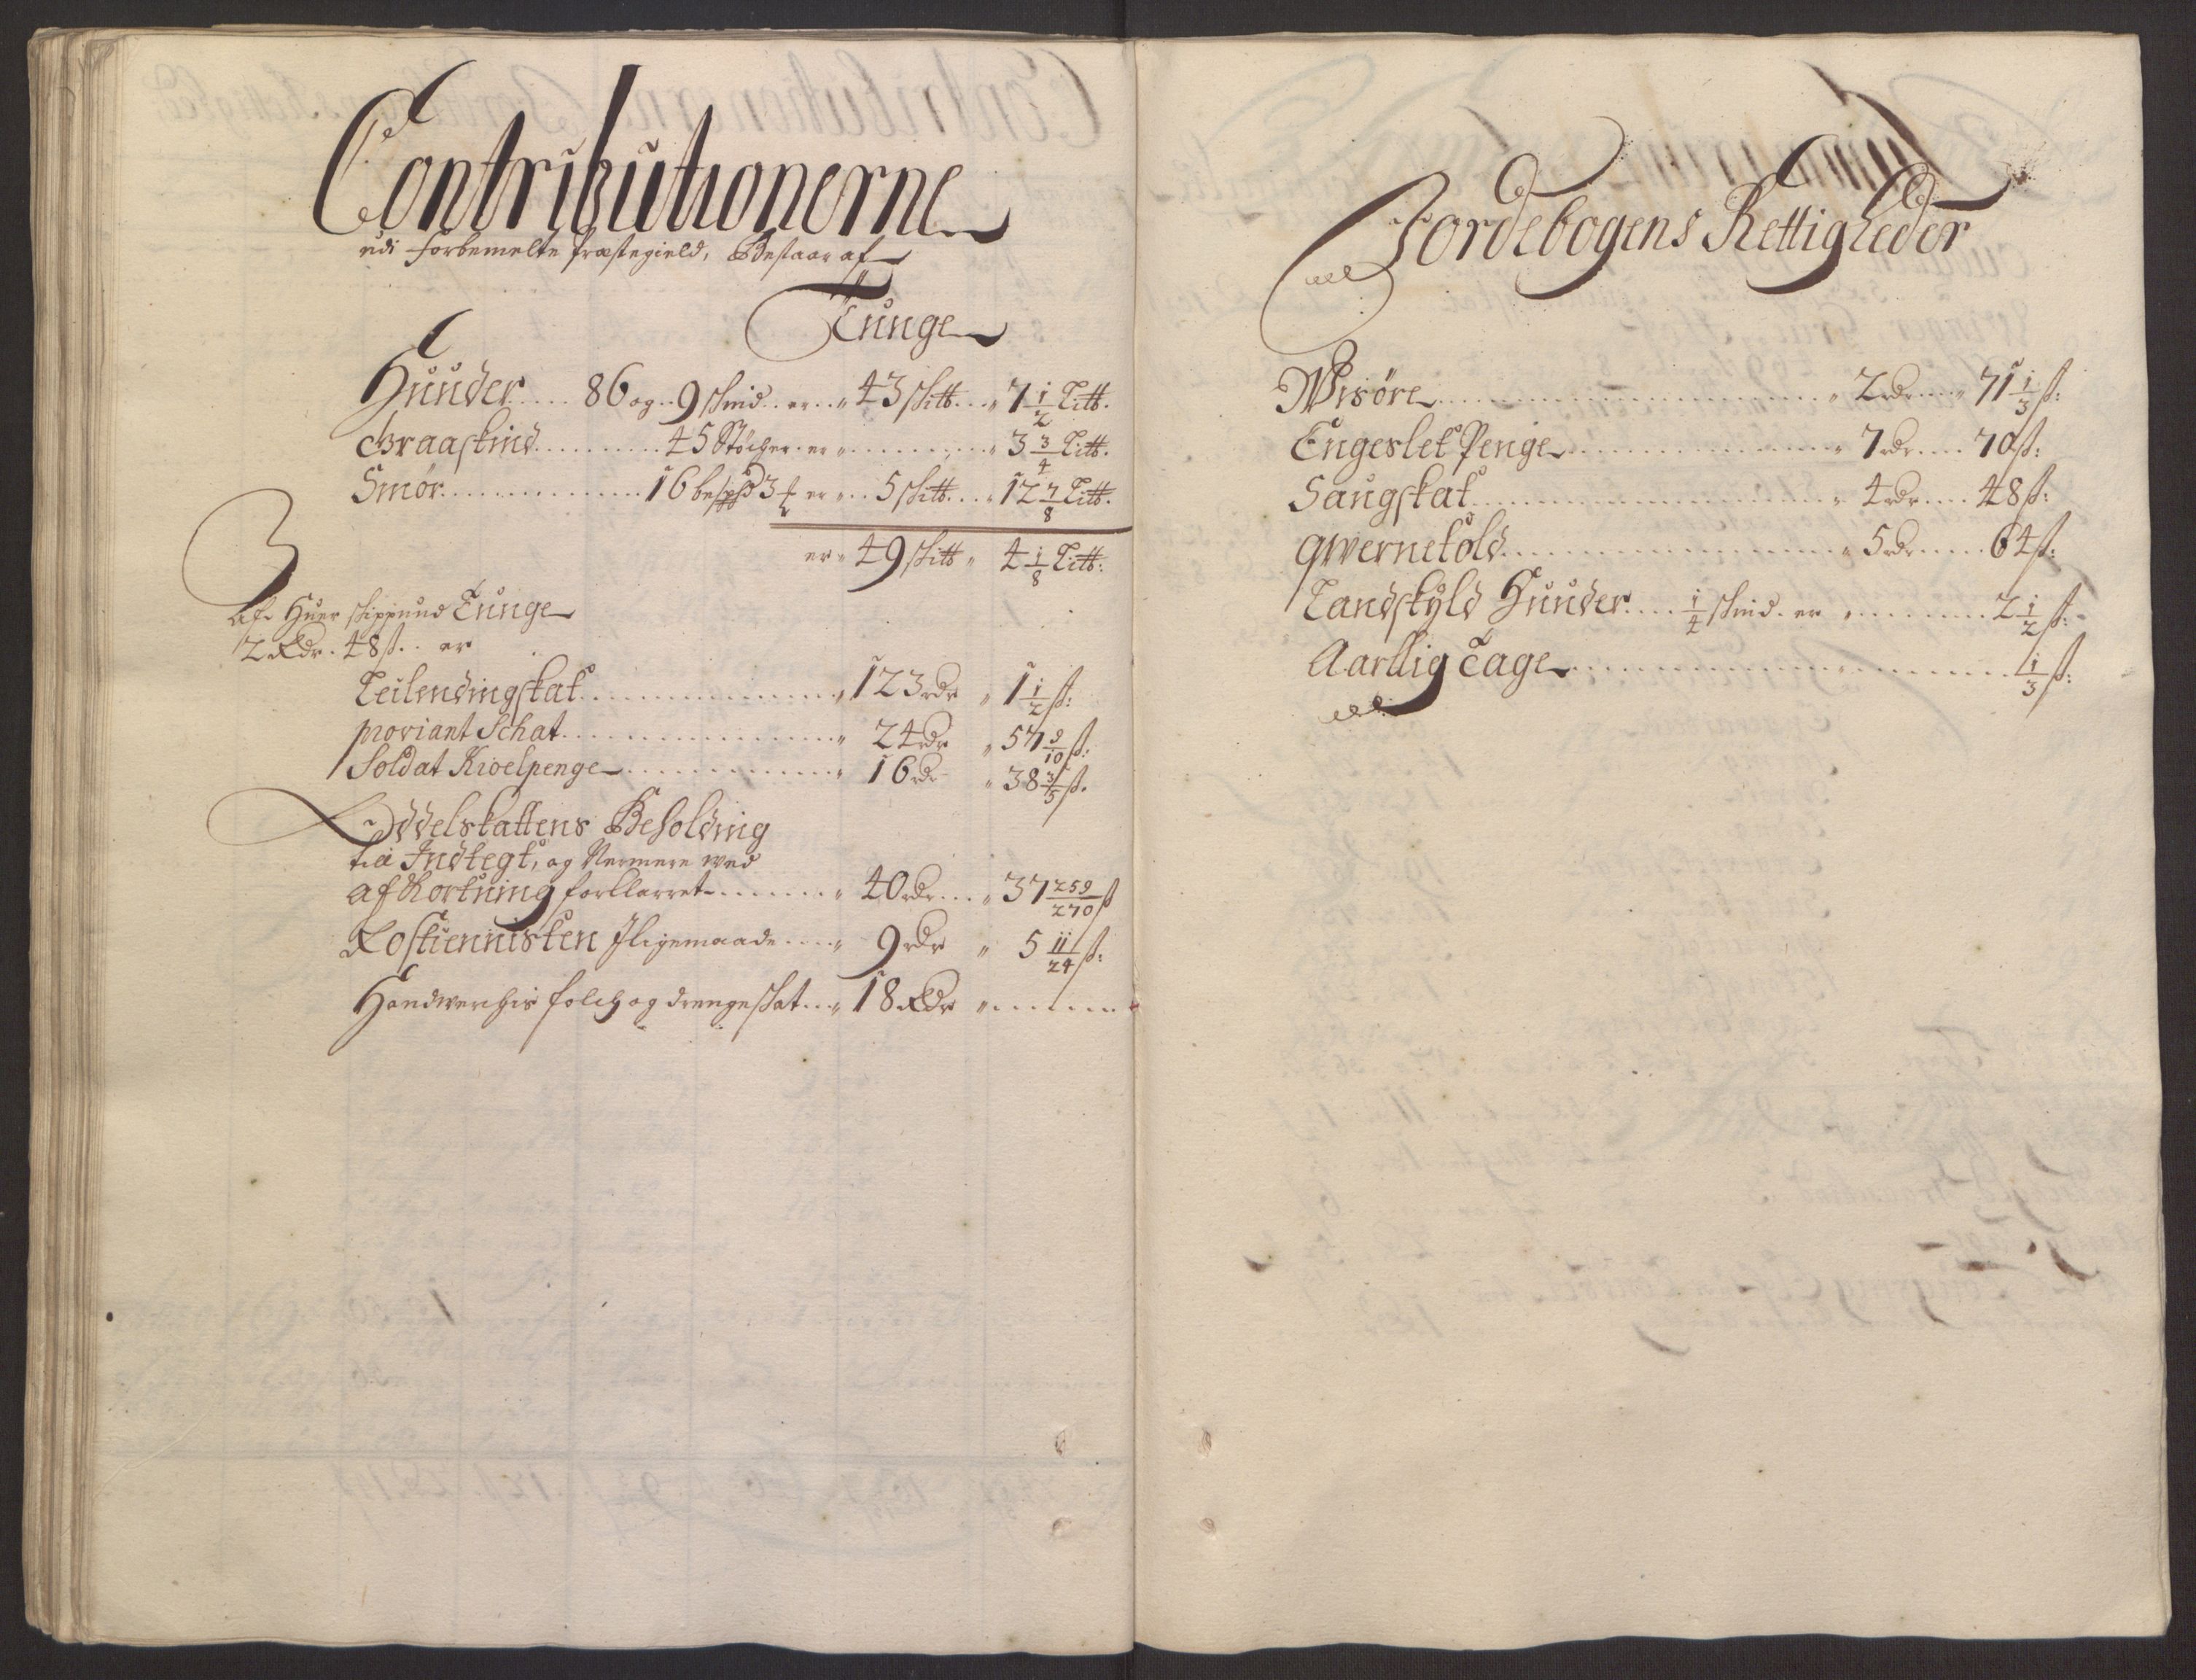 Contributionerne
udi forbemelte Præstegield, Bestaar af
Tunge
Huuder.... 86 og 9 skind.. er.. 43 skitt... 7 1/2 Litt.
Graaskind......... 45 Stöcher. er ......... 3 3/4 Litt.
Smör............. 16 er... 5 skitt.... 12 7/8 Litt.
er 49 skitt 4 1/8 Litt:
Af Huer skippund Tunge
2 Rdr. 48 ß.. er
Leilendingskat............. 123 rdr 1 1/2 ß:
proviant Schat............. 24 rdr 57 9/10 ß:
Soldat Kioelpenge........... 16 rdr 38 3/5 ß.
Oddelskattens Beholding
til Indtegt, og Nermere wed
afkortning forklarret....... 40 rdr... 37 259/270 ß
Rostiennisten Jligemaade.... 9 rdr 5 11/24 ß:
Handwerchis folch og drengeskat... 18 Rdr .......
Jordebogens Rettigheder
Wisöre.................. 2 rdr.... 71 1/3 ß:
Engeslet Penge.............. 7 rdr.... 70 ß:
Saugskat.................. 4 rdr.... 48 ß:
Qwernetold................. 5 rdr..... 64 ß:
Landskyld Huuder.... 1/4 skind. er ........ 2 1/2 ß:
Aarllig Tage....................... 1/3 ß: